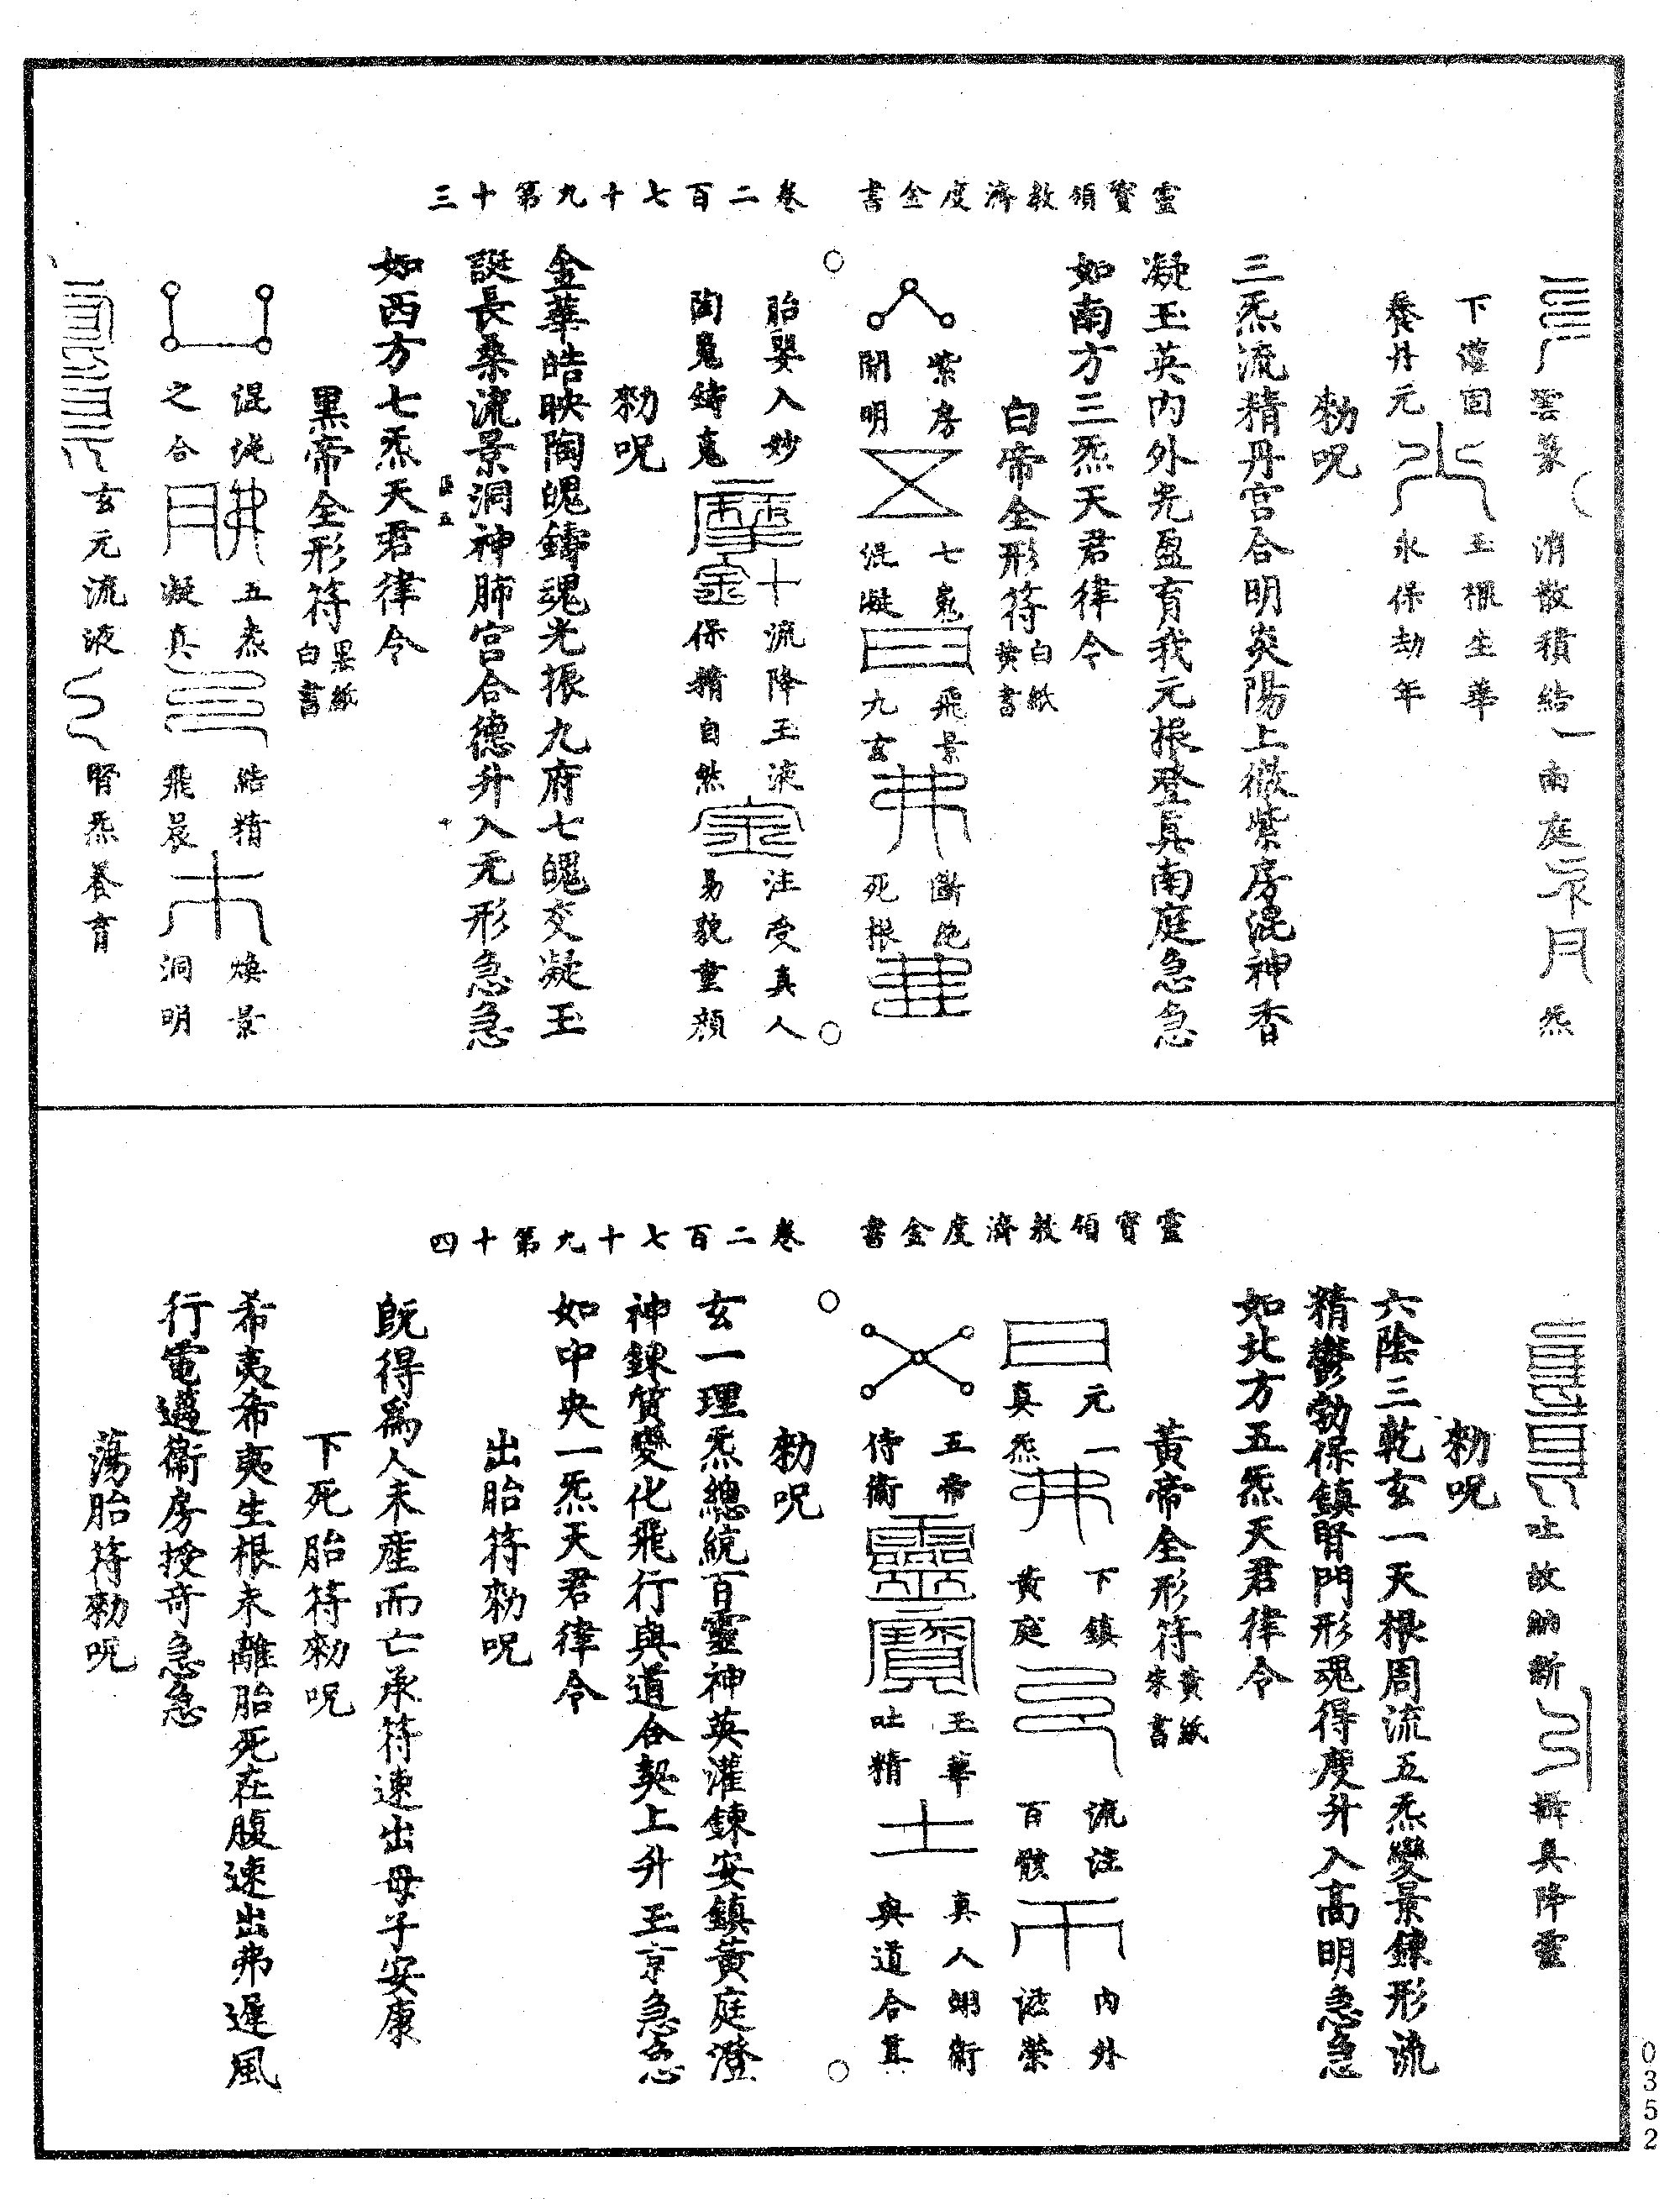 靈寶領教濟度金書　卷二百七十九第十三
雲篆　消散積結　南庭　炁
下灌固　玉根生華
養丹元　永保劫年
勑呪
三炁流精丹宮合明炎陽上徹紫房混神杳
凝玉英內外光盈育我元根登真南庭急急
如南方三炁天君律令
白帝全形符白紙黃書
紫房　七魂　飛景　斷絕
開明　混凝　九玄　死根
胎嬰入妙　流降玉液　注受真人
陶魂鑄魂　保精自然　易貌童顏
勑呪
金華皓映陶魄鑄魂光振九府七魄交凝玉
誕長桑流景洞神肺宮合德升入无形急急
如西方七炁天君律令
黑帝全形符黑紙白書
混沌　五炁　結精　煥景
之合　凝真　飛晨　洞明
玄元流液　腎炁養育
靈寶領教濟度金書　卷二百七十九第十四
吐故納新　攝真降靈
勑呪
六陰三乾玄一天根周流五炁變景鍊形流
精鬱勃保鎮腎門形魂得度升入高明急急
如北方五炁天君律令
黃帝全形符黃紙朱書
元一　下鎮　流注　內外
真炁　黃庭　百骸　滋榮
五帝　玉華　真人翊衛
侍衛　吐精　與道合真
勑呪
玄一理炁總統百靈神英灌鍊安鎮黃庭澄
神鍊質變化飛行與道合契上升玉京急急
如中央一炁天君律令
出胎符勑呪
既得為人未產而亡承符速出母子安康
下死胎符勑呪
希夷希夷生根未離胎死在腹速出弗遲風
行電邁衛房授奇急急
蕩胎符勑呪
0352